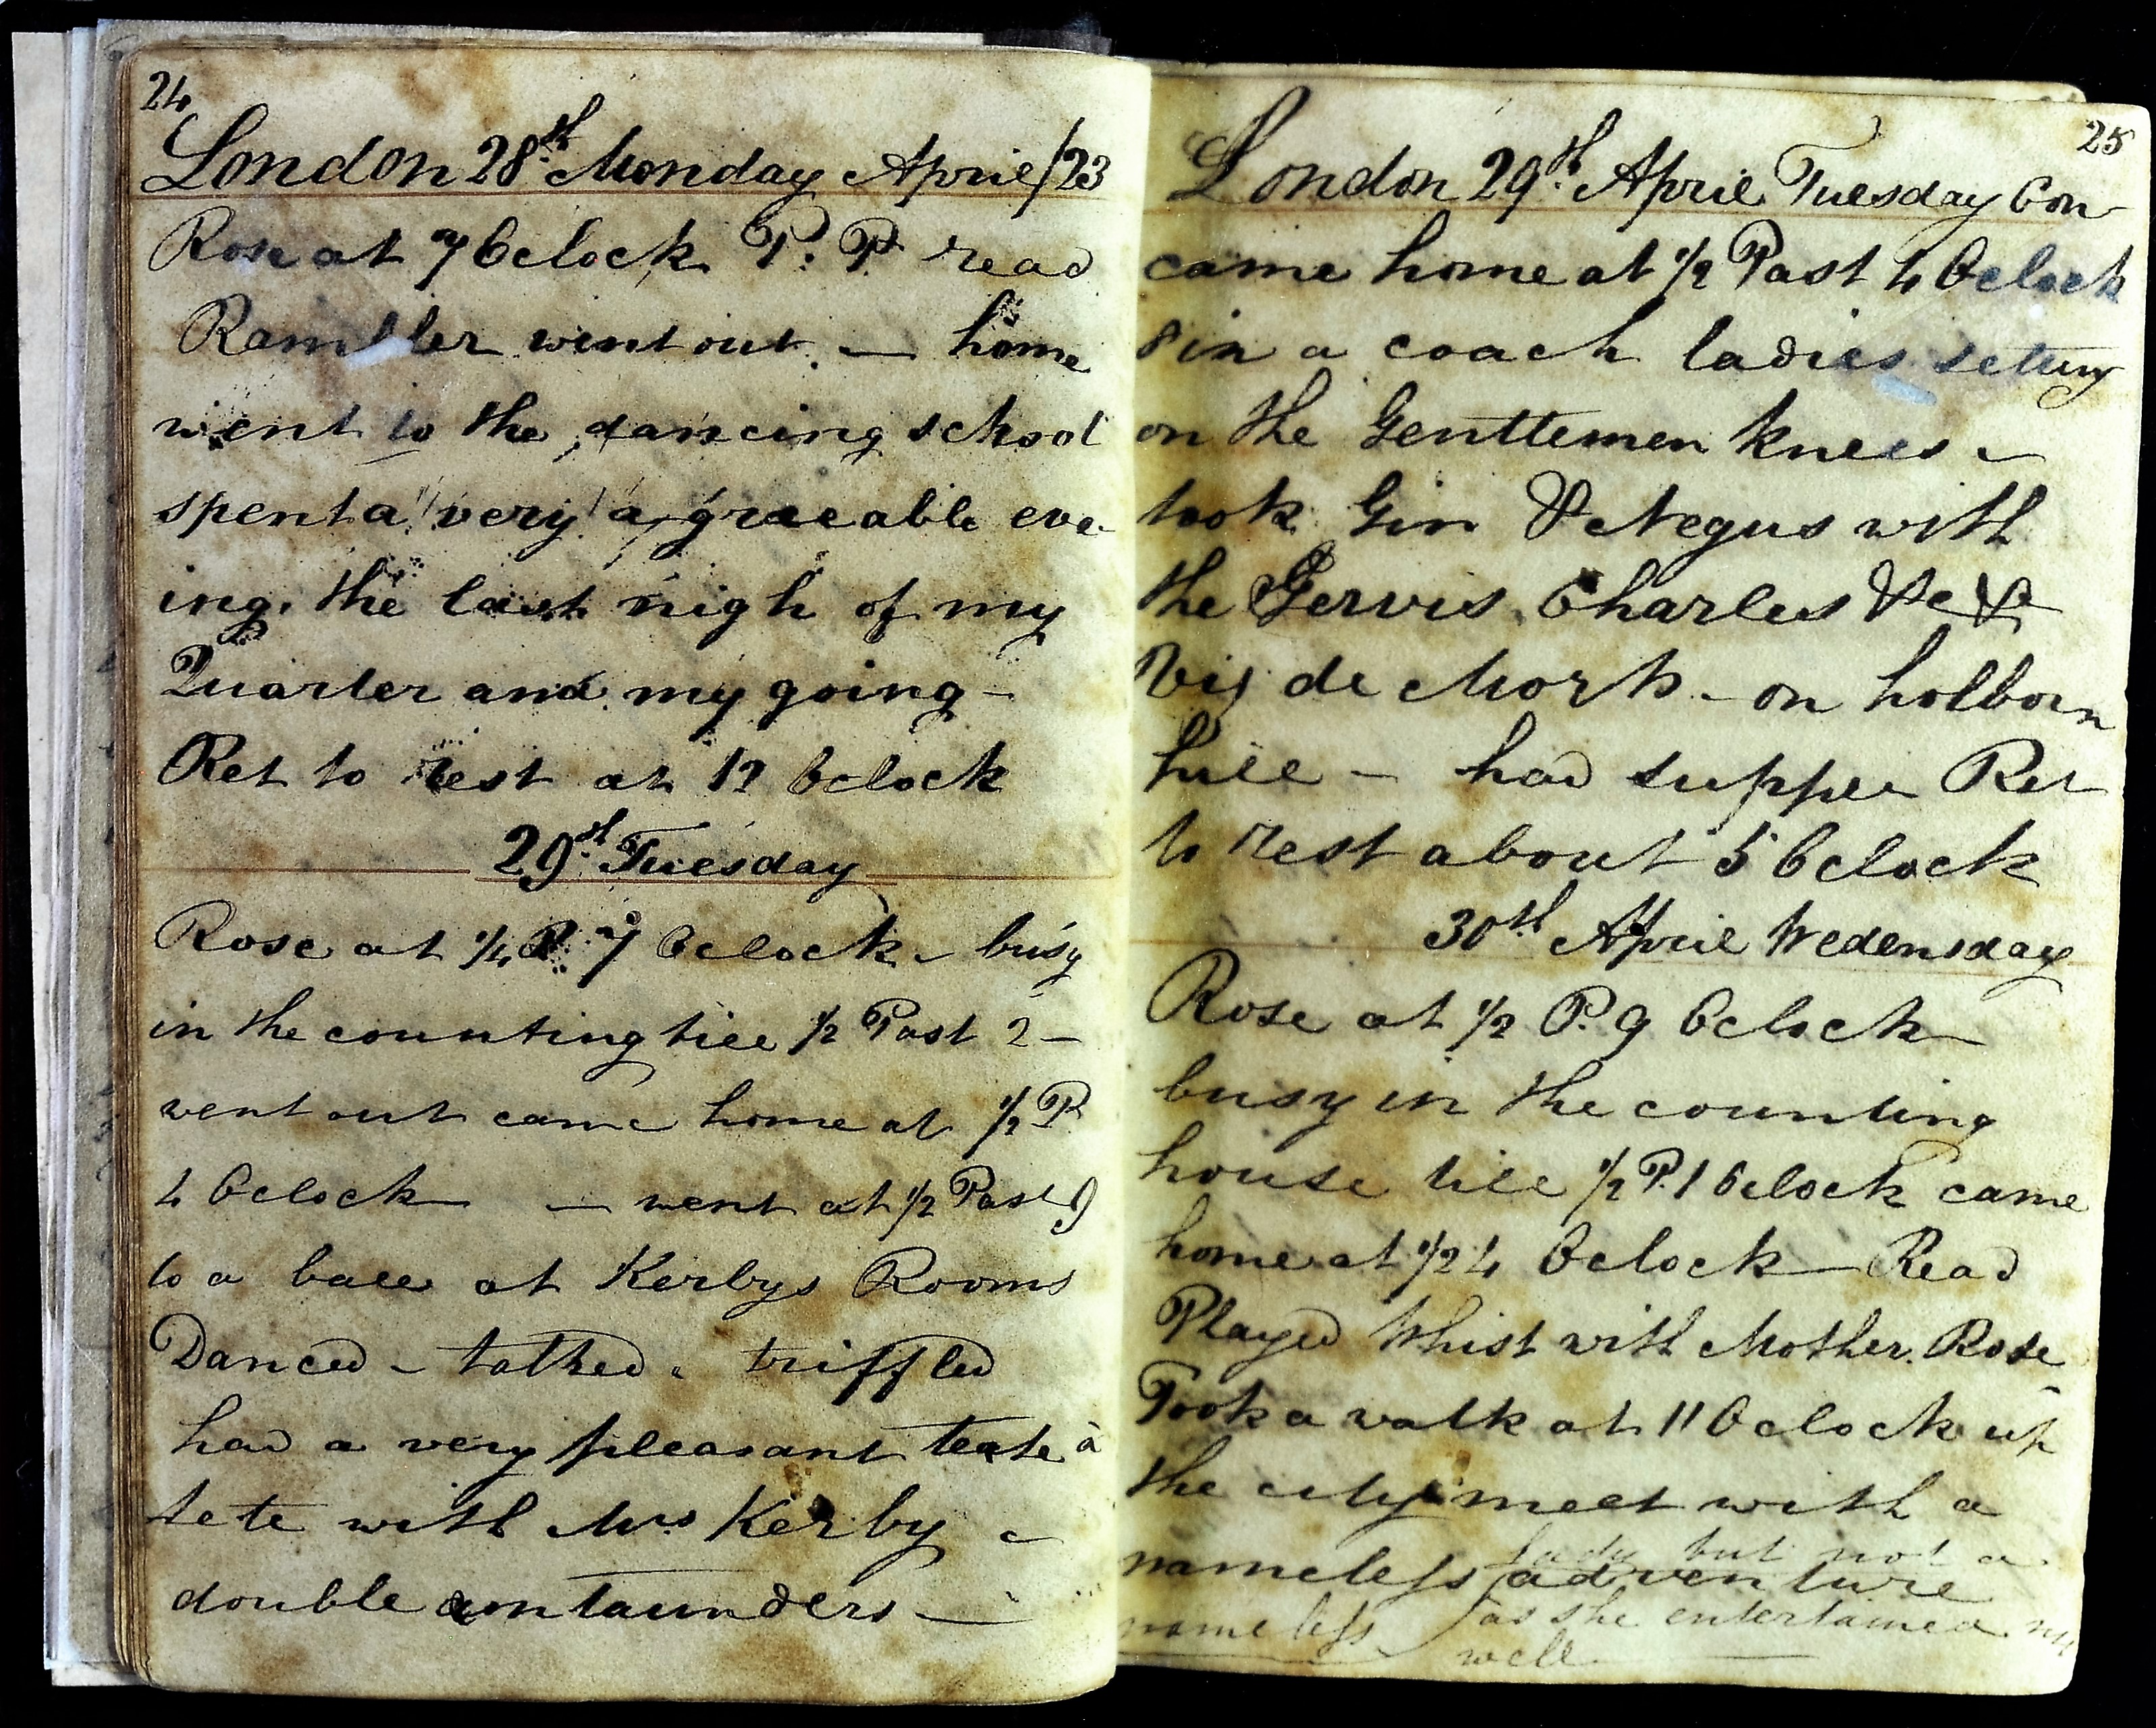 24
London 28th Monday April /23
Rose at 7 Oclock P. P. read
Rambler went out. — home
went to the dancing school
spent a very agreeable eve-
ing. the last nigh of my
Quarter and my going —
Ret to rest at 12 Oclock
29th Tuesday
Rose at 1/4 P 7 Oclock — busy
in the counting till 1/2 Past 2 —
went out came home at 1/2 P
4 Oclock — went at 1/2 Past 9
to a ball at Kerbys Rooms
Danced — talked — triffled
had a very pleasant teate à
tete with Mrs Kerby —
double —
25
London 29th April Tuesday Con—
came home at 1/2 Past 4 Oclock
8 in a coach ladies setting
on the Genttemen knees —
took Gin & Negus with
the Gervis Charles &c &
de — on holborn
hill — had supper Ret
to rest about 5 Oclock
30th April Wedensday
Rose at 1/2 P. 9 Oclock —
busy in the counting
house till 1/2 P. 1 Oclock came
home at 1/2 4 Oclock — Read
Played Whist with Mother. Rose
Took a walk at 11 Oclock up
the city meet with a
lady but not a
nameless adventure
nameless as she entertained me
well —